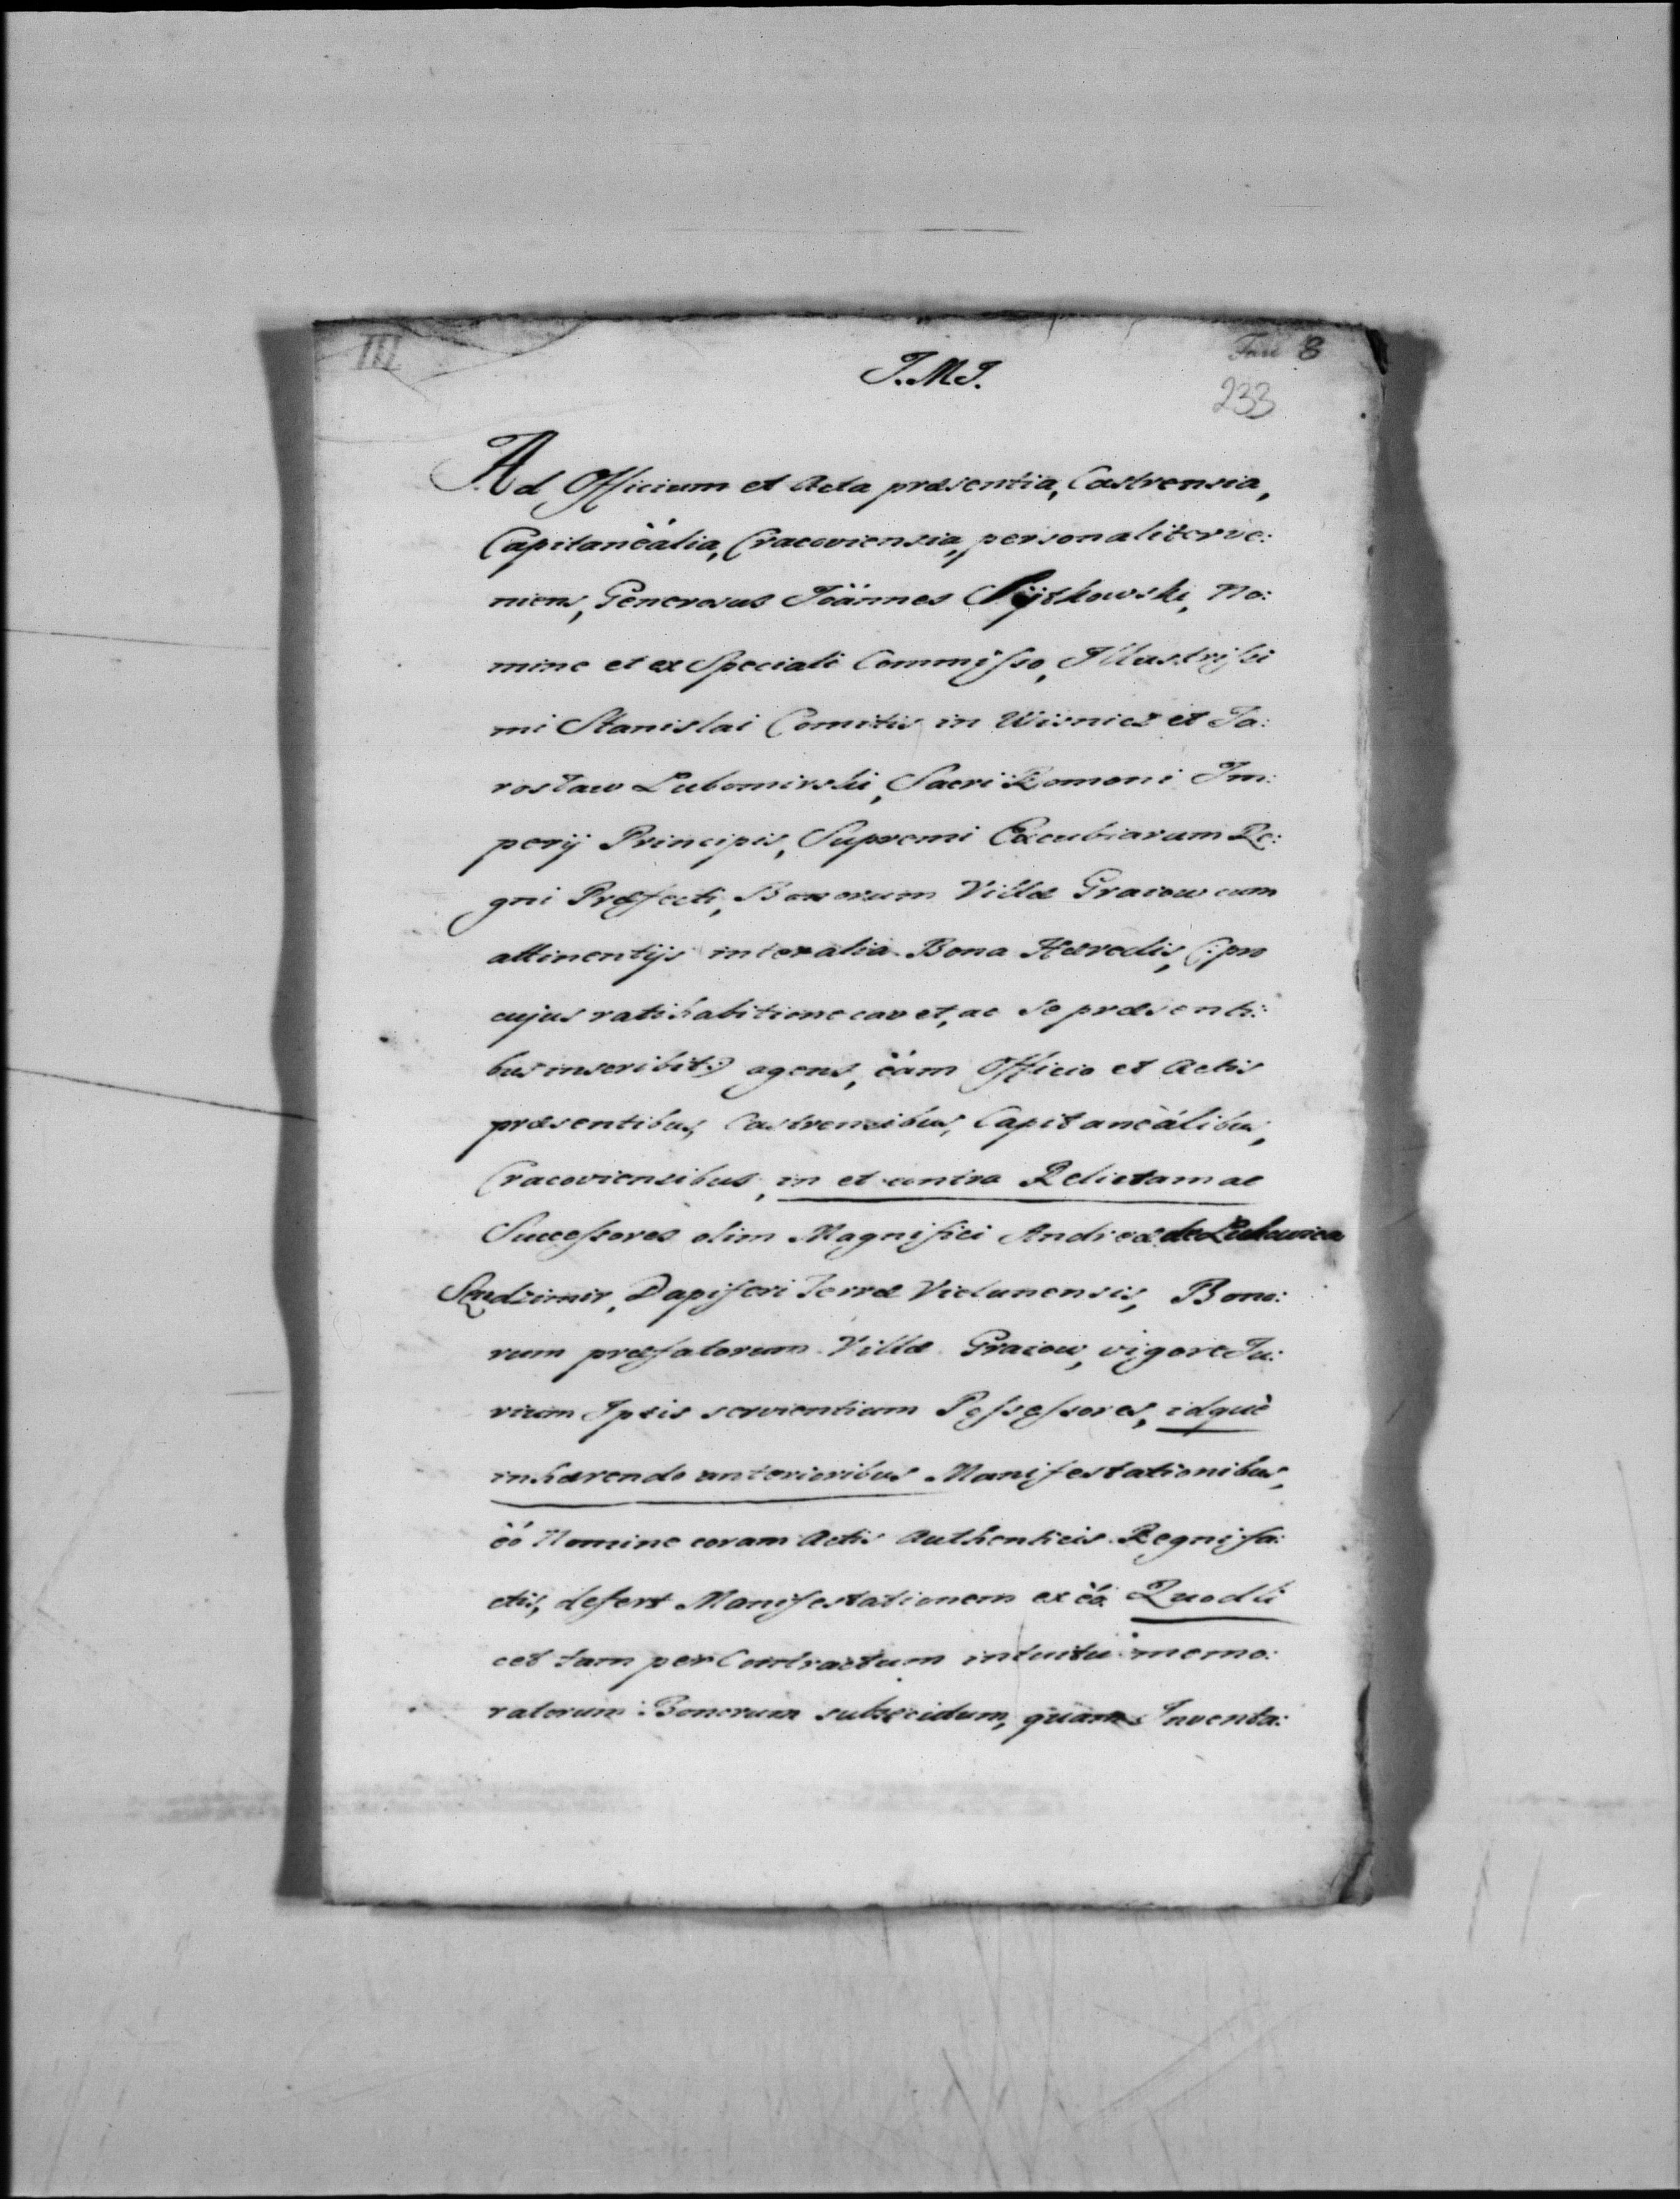 III
8
J. M. J.
233
Ad Officium et Acta præsentia, Castrensia,
Capitaneálía, Cracoviensia, personaliter ve:
niens, Generosus Joännes Nÿtkowski, No:
mine et ex Speciali Commisso, Illustrissi
mi Stanislai Comitis in Wisnicz et Ja:
rosław Lubomirski, Sacri Romani Im:
perij Principis, Supremi Excubiarum Re:
gni Præfecti, Bonorum Villæ Graiow cum
attinentijs inter alia Bona Hæredis, (: pro
cujus ratihabitione cavet, ac se præsenti:
bus inscribit :) agens, cäm Officio et Actis
præsentibus, Castrensibus, Capitaneálibus,
Cracoviensibus, in et contra Relictam ac
Successores olim Magnifici Andreæ de Lukawica
Sędzimir, Dapiferi Terræ Vielunensis, Bono:
rum præfatorum Villæ Graiow, vigore Ju:
rium Ipsis servientium Possessores, idquè
inhærendo anterioribus Manifestationibus,
eó Nomine coram Actis Authenticis Regni fa:
ctis, defert Manifestationem ex eá Quod li
cet tam per Contractum intuitu memo:
ratorum Bonorum subsecutum, quam Inventa: